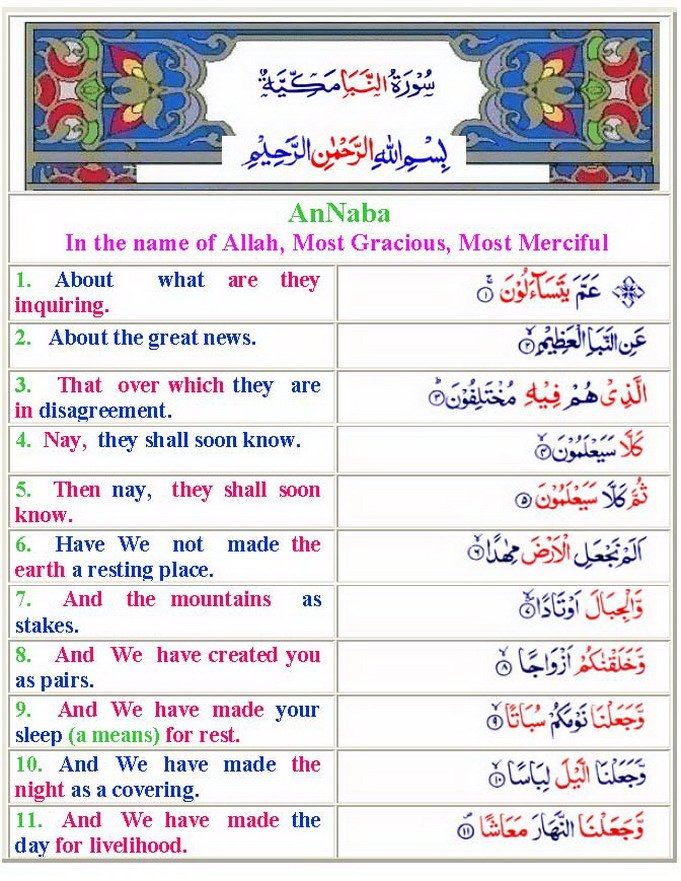 سُوْرَةُ النَّبَاِ مَكِّيَّةٌ
بِسْمِ اللهِ الرَّحْمٰنِ الرَّحِيْمِ
AnNaba
In the name of Allah, Most Gracious, Most Merciful
1. About what are they
inquiring.
عَمَّ يَتَسَآءَلُوْنَ ۚ ۱
2. About the great news.
عَنِ النَّبَاِ الْعَظِيْمِ ۙ ۲
3. That over which they are
in disagreement.
الَّذِىْ هُمْ فِيْهِ مُخْتَلِفُوْنَ ؕ ۳
4. Nay, they shall soon know.
كَلَّا سَيَعْلَمُوْنَ ۙ ۴
5. Then nay, they shall soon
know.
ثُمَّ كَلَّا سَيَعْلَمُوْنَ ۵
6. Have We not made the
earth a resting place.
اَلَمْ نَجْعَلِ الْاَرْضَ مِهٰدًا ۙ ۶
7. And the mountains as
stakes.
وَّالْجِبَالَ اَوْتَادًا ۙ ۷
8. And We have created you
as pairs.
وَّخَلَقْنٰكُمْ اَزْوَاجًا ۙ ۸
9. And We have made your
sleep (a means) for rest.
وَّجَعَلْنَا نَوْمَكُمْ سُبَاتًا ۙ ۹
10. And We have made the
night as a covering.
وَّجَعَلْنَا الَّيْلَ لِبَاسًا ۙ ۱۰
11. And We have made the
day for livelihood.
وَّجَعَلْنَا النَّهَارَ مَعَاشًا ۪ ۱۱